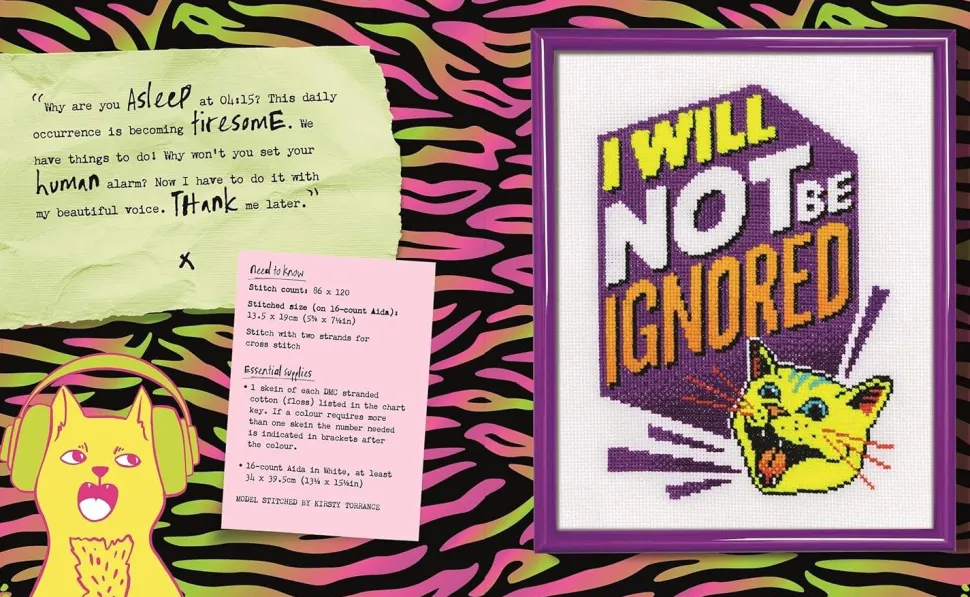 “Why are you Asleep at 04:15? This daily
occurrence is becoming tiresomE. We
have things to do! Why won't you set your
human alarm? Now I have to do it with
my beautiful voice. THank me later.”
X
Need to know
Stitch count: 86 x 120
Stitched size (on 16-count Aida):
13.5 x 19cm (5⅜ x 7½in)
Stitch with two strands for
cross stitch
Essential supplies
• 1 skein of each DMC stranded
cotton (floss) listed in the chart
key. If a colour requires more
than one skein the number needed
is indicated in brackets after
the colour.
• 16-count Aida in White, at least
34 x 39.5cm (13¼ x 15½in)
MODEL STITCHED BY KIRSTY TORRANCE
I WILL
NOT BE
IGNORED